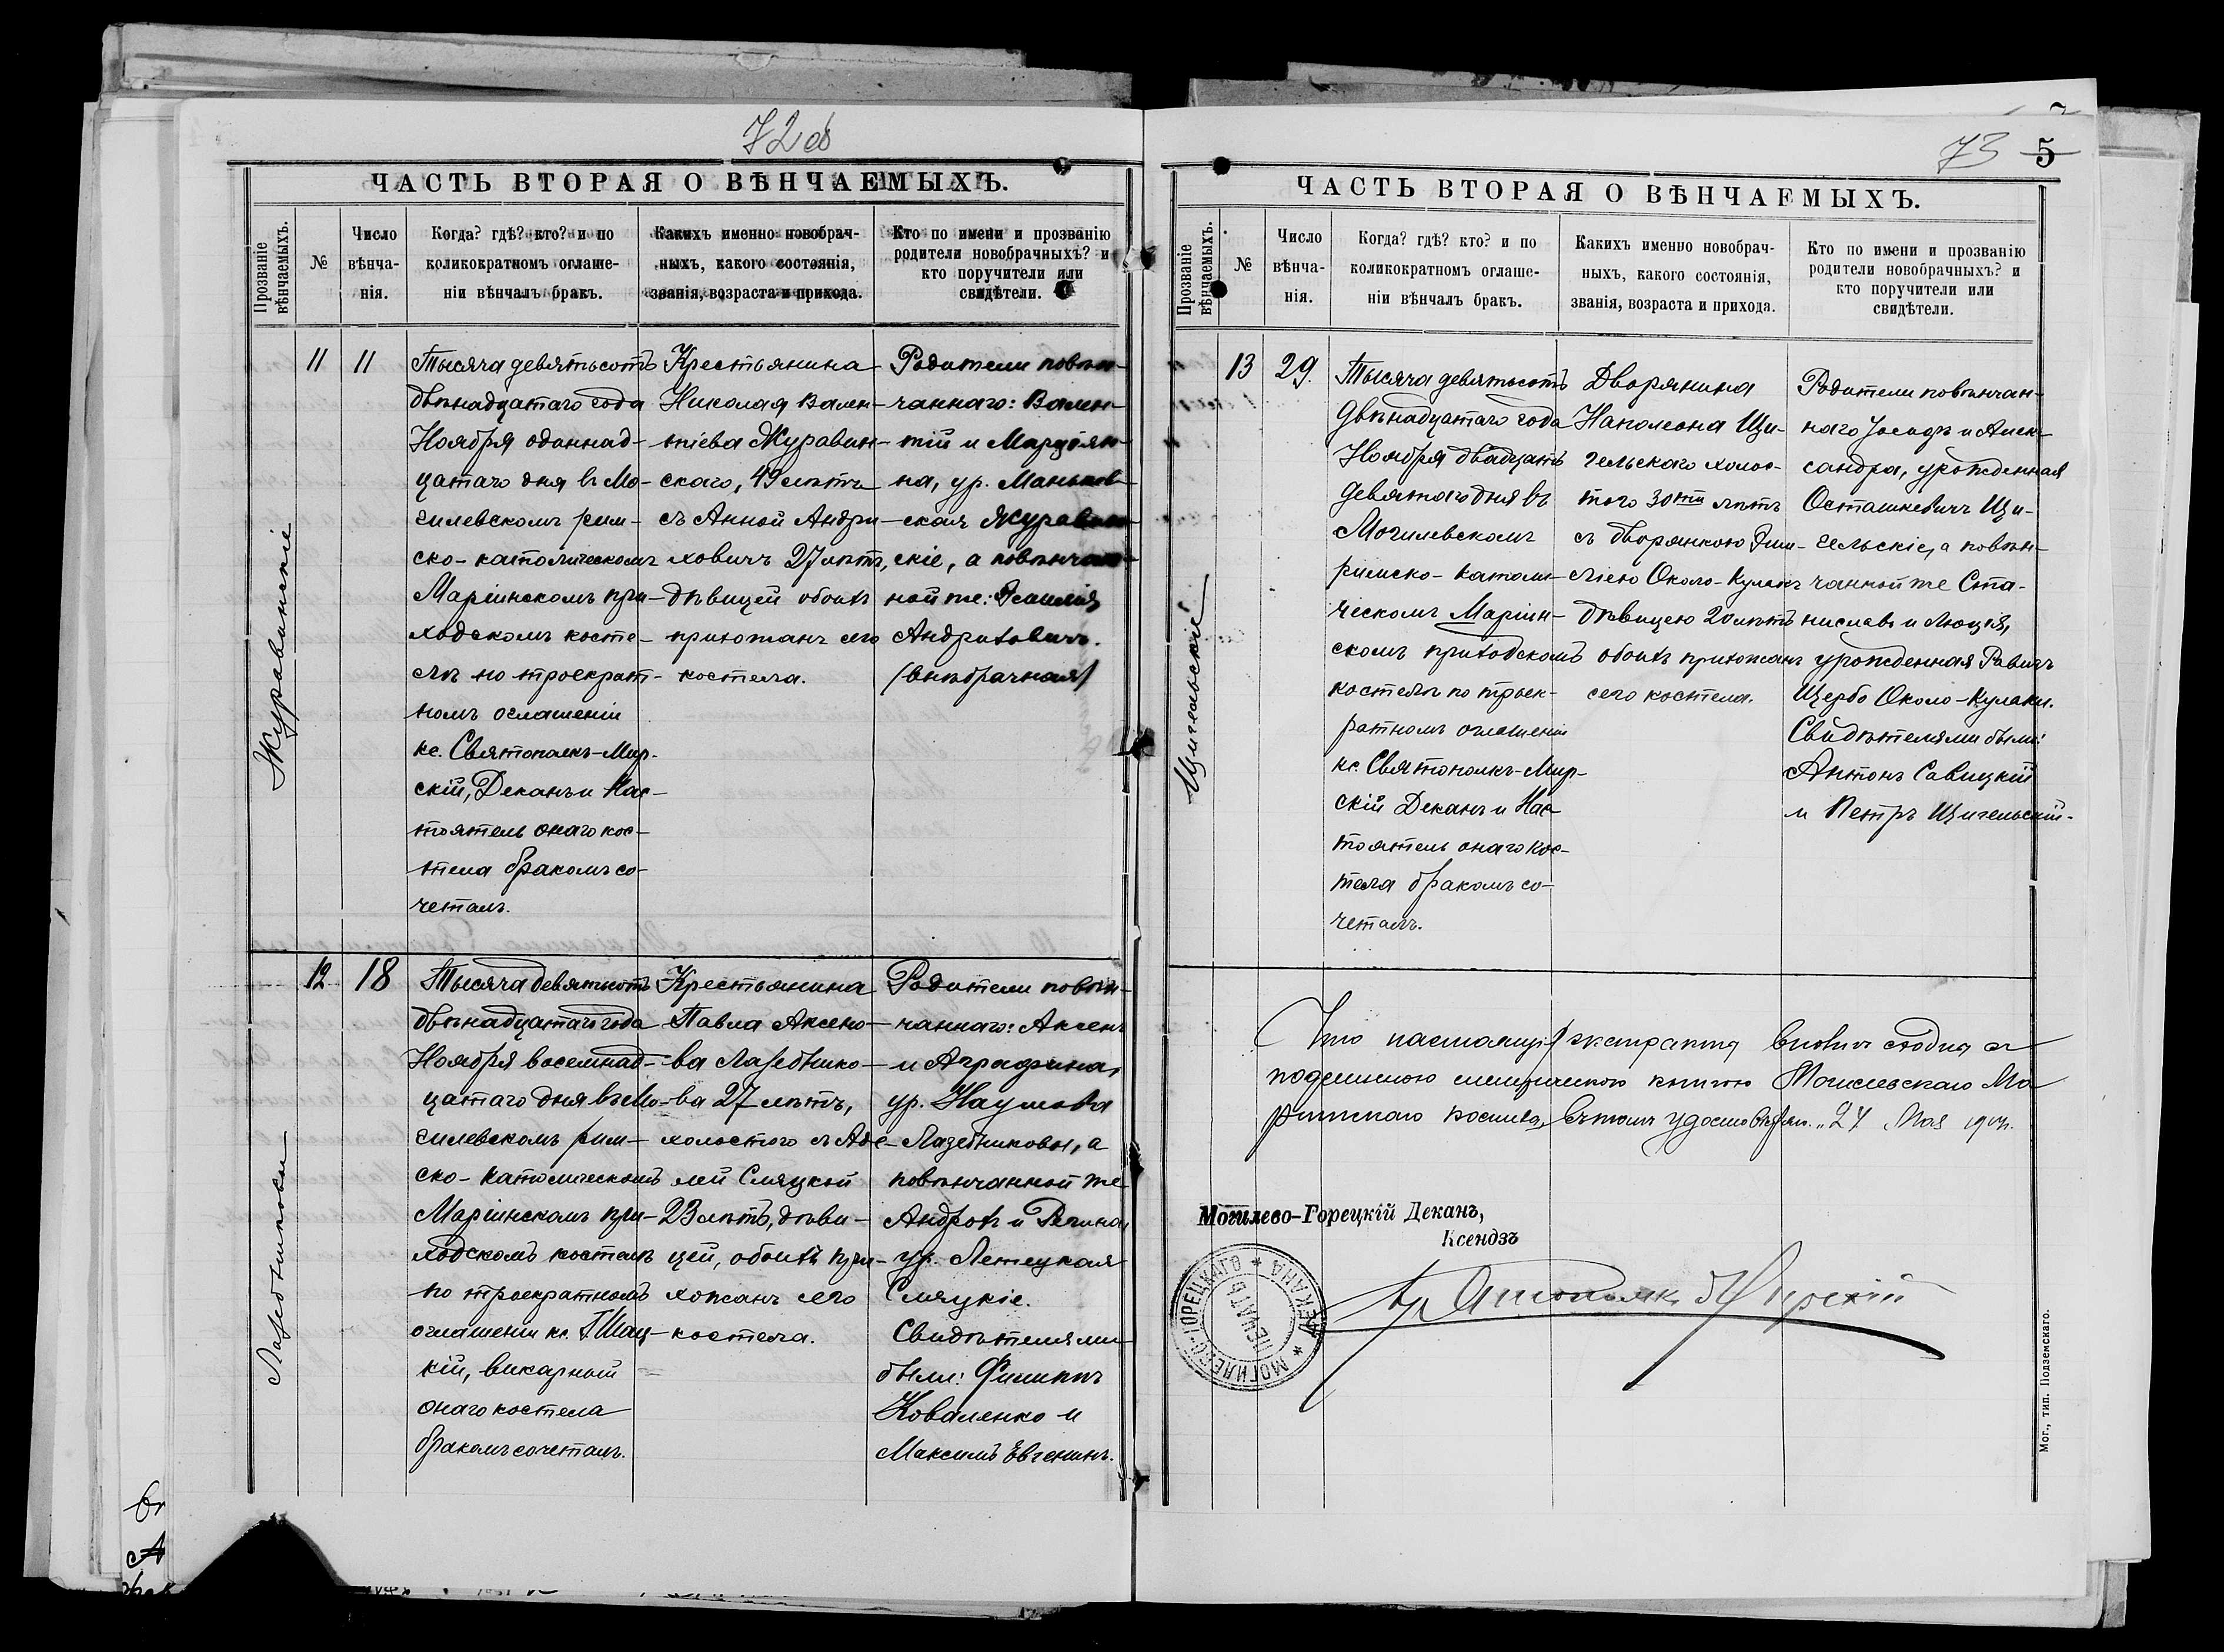 72об
ЧАСТЬ ВТОРАЯ О ВѢНЧАЕМЫХЪ.
Прозваніе вѣнчаемыхъ.
№
Число вѣнча-нія.
Когда? гдѣ? кто? и по
коликократномъ оглаше-
ніи вѣнчалъ бракъ.
Какихъ именно новобрач-
ныхъ, какого состоянія,
званія, возраста и прихода.
Кто по имени и прозванію
родители новобрачныхъ? и
кто поручители или
свидѣтели.
Журавинскіе
11
11
Тысяча девятьсотъ
двѣнадцатаго года
Ноября одиннад-
цатаго дня въ Мо-
гилевскомъ рим-
ско-католическомъ
Маріинскомъ при-
ходскомъ косте-
лѣ по троекрат-
номъ оглашеніи
кс. Святополкъ-Мир-
скій, Деканъ и Нас-
тоятель онаго кос-
тела бракомъ со-
четалъ.
Крестьянина
Николая Вален-
тіева Журавин-
скаго, 49 лѣтъ
съ Анной Андри-
ховичъ 27 лѣтъ,
дѣвицей обоихъ
прихожанъ сего
костела.
Родители повѣн-
чаннаго: Вален-
тій и Марціян-
на, ур. Маньков-
ская Журавин-
скіе, а повѣнчан-
ной же: Эмилія
Андриховичъ.
(внѣбрачная)
Лазебниковы
12
18
Тысяча девятьсотъ
двѣнадцатаго года
Ноября восемнад-
цатаго дня въ Мо-
гилевскомъ рим-
ско-католическомъ
Маріинскомъ при-
ходскомъ костелѣ
по троекратномъ
оглашеніи кс. Г. Шац-
кій, викарный
онаго костела
бракомъ сочеталъ.
Крестьянина
Павла Аксено-
ва Лазебнико-
ва 27 лѣтъ,
холостого съ Аде-
лей Смяцкой
23 лѣтъ, дѣви-
цей, обоихъ при-
хожанъ сего
костела.
Родители повѣн-
чаннаго: Аксенъ
и Аграфина,
ур. Наумова
Лазебниковы, а
повѣнчанной же
Андрей и Регина
ур. Летецкая
Смяцкіе.
Свидѣтелями
были: Филиппъ
Коваленко и
Максимъ Евгенинъ.
73
5
ЧАСТЬ ВТОРАЯ О ВѢНЧАЕМЫХЪ.
Прозваніе вѣнчаемыхъ.
№
Число вѣнча-нія.
Когда? гдѣ? кто? и по
коликократномъ оглаше-
ніи вѣнчалъ бракъ.
Какихъ именно новобрач-
ныхъ, какого состоянія,
званія, возраста и прихода.
Кто по имени и прозванію
родители новобрачныхъ? и
кто поручители или
свидѣтели.
Щигельскіе
13
29.
Тысяча девятьсотъ
двѣнадцатаго года
Ноября двадцать
девятаго дня въ
Могилевскомъ
римско-католи-
ческомъ Маріин-
скомъ приходскомъ
костелѣ по троек-
ратномъ оглашеніи
кс. Святополкъ-Мир-
скій Деканъ и Нас-
тоятель онаго кос-
тела бракомъ со-
четалъ.
Дворянина
Наполеона Щи-
гельскаго холос-
того 30ти лѣтъ
съ дворянкою Эми-
ліею Около-Кулакъ
дѣвицею 20 лѣтъ
обоихъ прихожанъ
сего костела.
Родители повѣнчан-
наго Іосифъ и Алек-
сандра, урожденная
Осташкевичъ Щи-
гельскіе, а повѣн-
чанной же Ста-
ниславъ и Люція,
урожденная Равичъ
Щербо Около-Кулаки.
Свидѣтелями были:
Антонъ Савицкій
и Петръ Щигельскій.
Что настоящій экстрактъ вполнѣ сходна съ
подлинною метрическою книгою Могилевскаго Ма
ріинскаго костела, въ томъ удостовѣряю. „24 Мая
Могилево-Горецкій Деканъ,
Ксендзъ
Святополкъ Мирскій
ПЕЧАТЬ * МОГИЛЕВО-ГОРЕЦКАГО * ДЕКАНА
Мог., тип. Подземскаго.